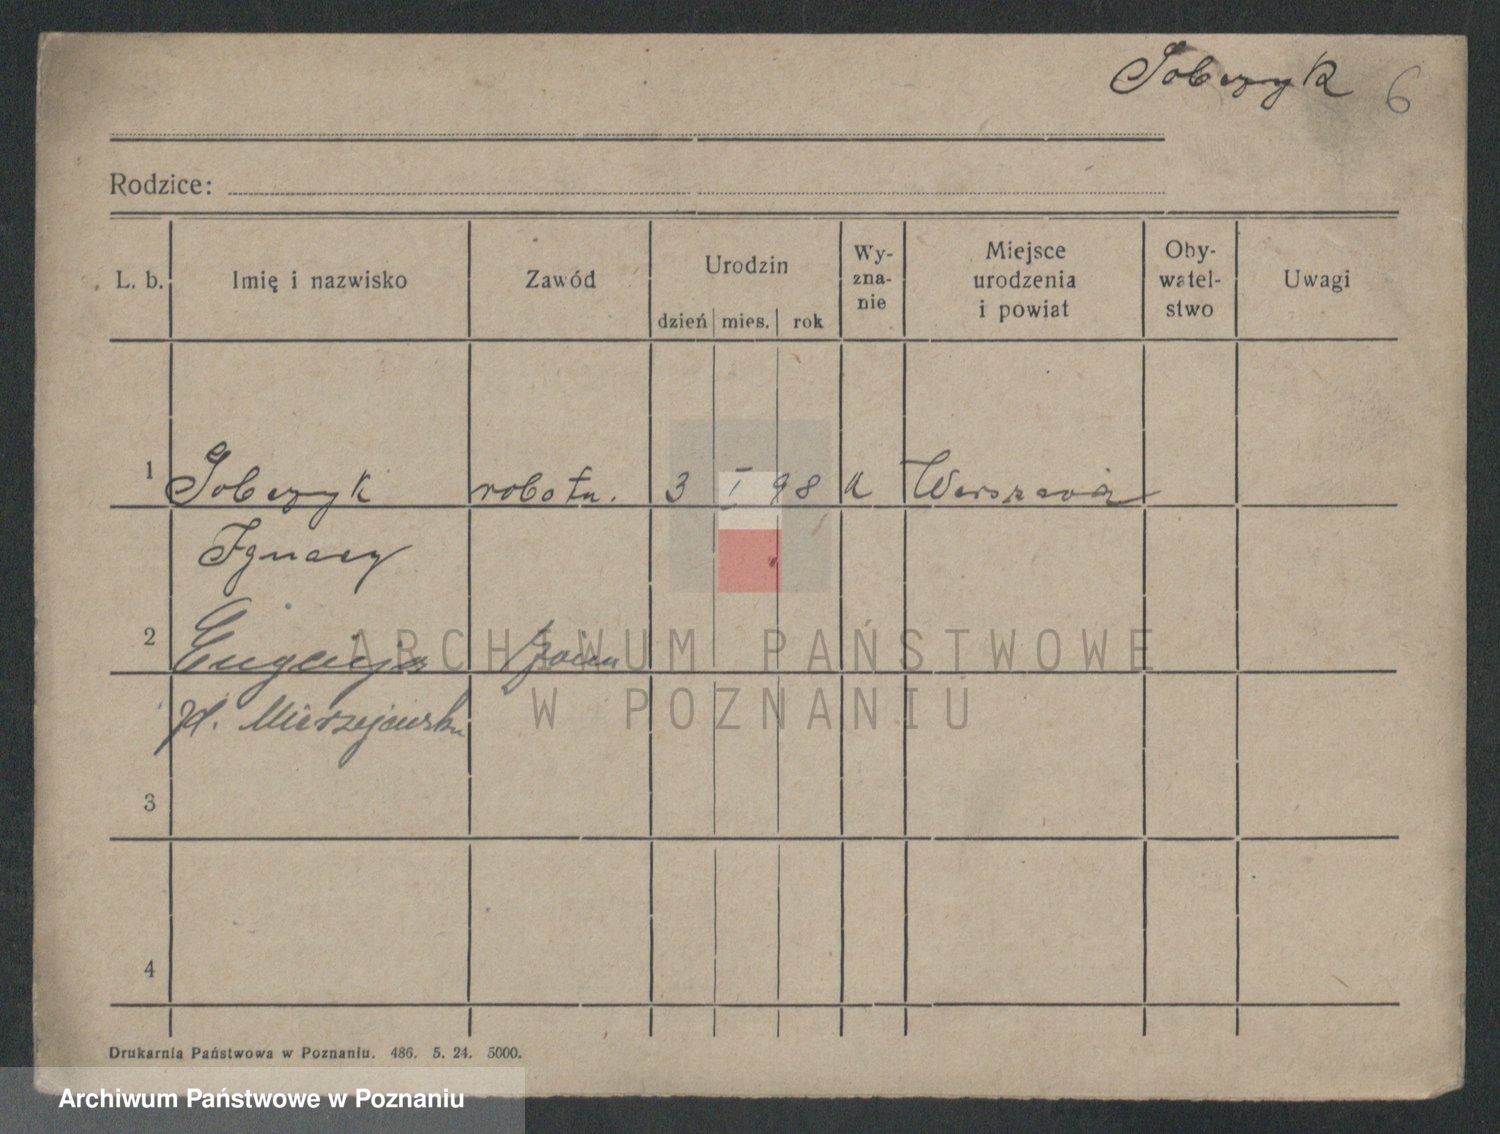 Sobczyk 6
Rodzice:
L. b. Imię i nazwisko Zawód Urodzin dzień mies. rok Wy-zna-nie Miejsce urodzenia i powiat Oby-watel-stwo Uwagi
1 Sobczyk robotn. 3 I 98 k Warszawa
Ignacy
2 Eugenja żona
zd. Mierzejewska
3
4
ARCHIWUM PAŃSTWOWE
W POZNANIU
Drukarnia Państwowa w Poznaniu. 486. 5. 24. 5000.
Archiwum Państwowe w Poznaniu